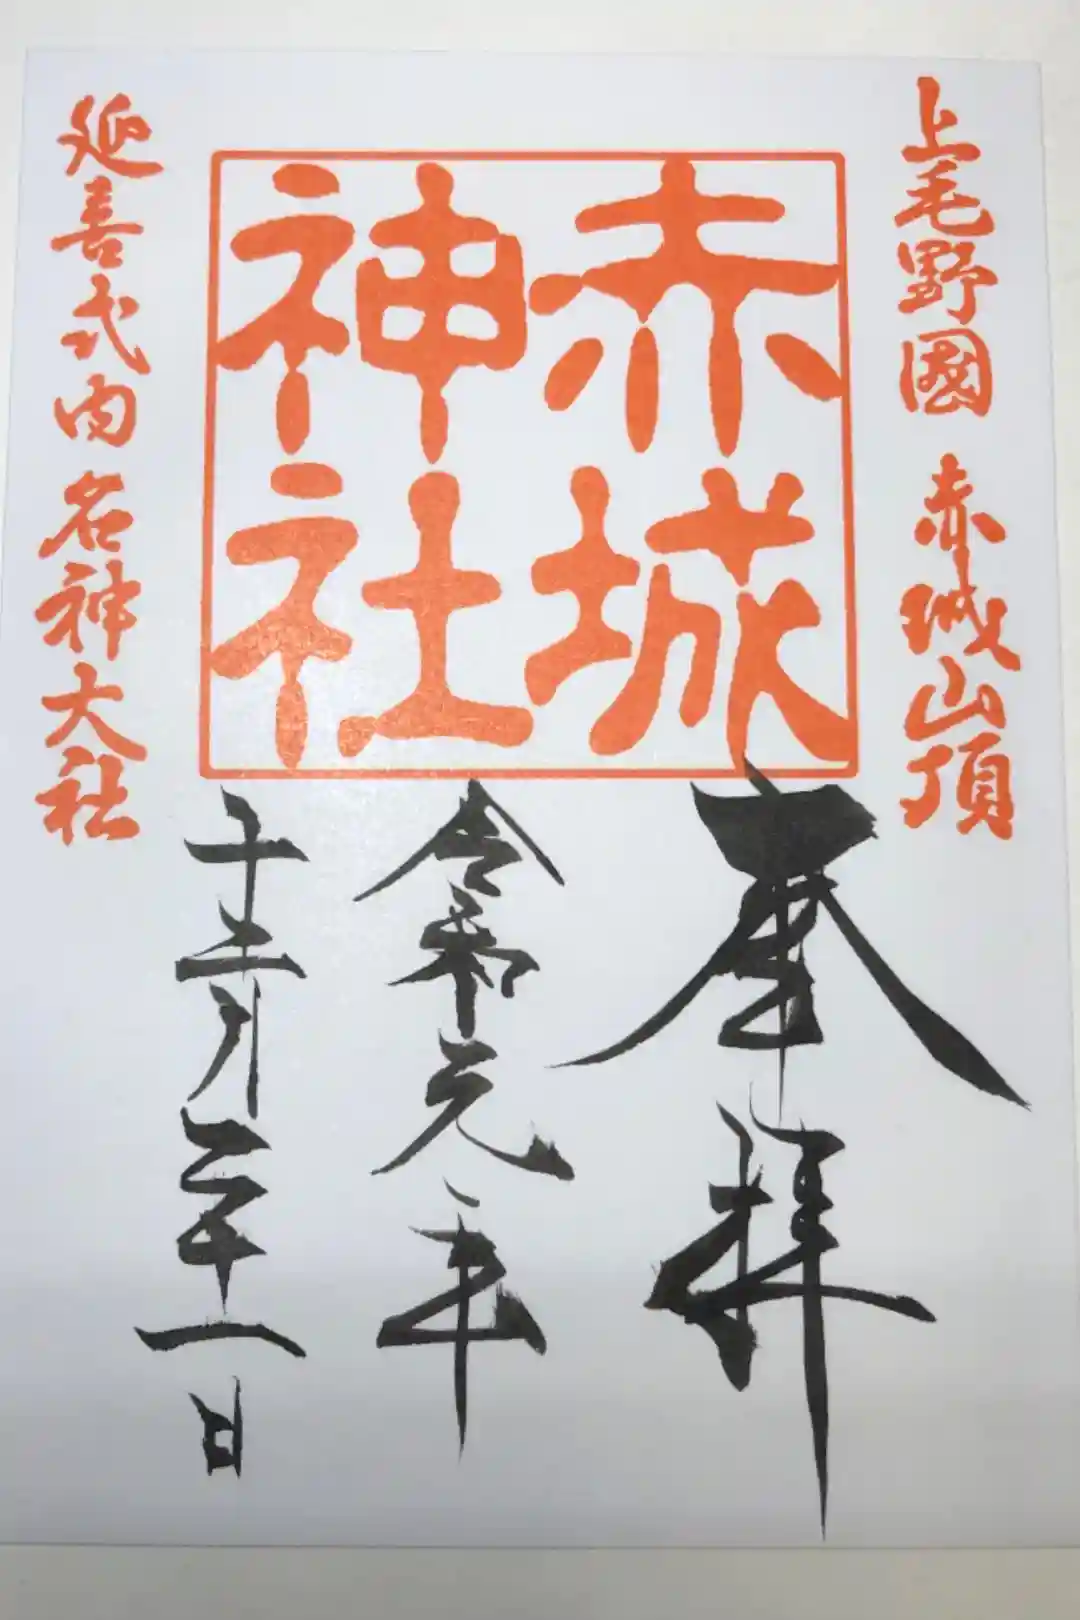 上毛野國 赤城山頂
赤城
神社
延喜式内 名神大社
奉拝
令和元年
十二月二十一日